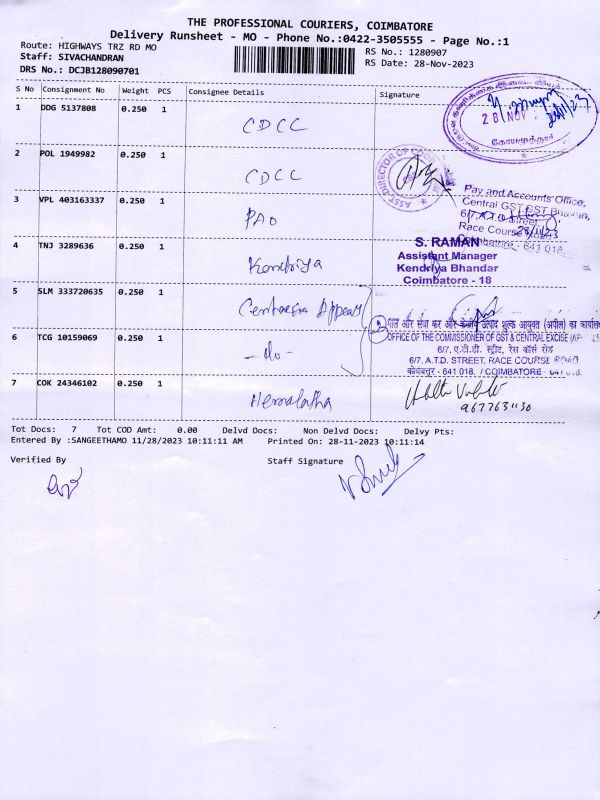 THE PROFESSIONAL COURIERS, COIMBATORE
Delivery Runsheet - MO - Phone No.:0422-3505555 - Page No.:1
Route: HIGHWAYS TRZ RD MO
RS No.: 1280907
Staff: SIVACHANDRAN
RS Date: 28-Nov-2023
DRS No.: DCJB128090701
S No Consignment No Weight PCS Consignee Details Signature
1 DDG 5137808 0.250 1 CDCC
28 NOV
கோயமுத்தூர்
2 POL 1949982 0.250 1 CDCC
ASST. DIRECTOR OF
3 VPL 403163337 0.250 1 PAO
Pay and Accounts Office,
Central GST GST Bhavan,
6/7, A.T.D. Street
Race Course Road
Coimbatore - 641 018.
4 TNJ 3289636 0.250 1 Kendriya
S. RAMAN
Assistant Manager
Kendriya Bhandar
Coimbatore - 18
5 SLM 333720635 0.250 1 Appeals
6 TCG 10159069 0.250 1 -do-
माल और सेवा कर और केन्द्रीय उत्पाद शुल्क आयुक्त (अपील) का कार्यालय
OFFICE OF THE COMMISSIONER OF GST & CENTRAL EXCISE
6/7, ए.टी.डी. स्ट्रीट, रेस कोर्स रोड
6/7, A.T.D. STREET, RACE COURSE ROAD
कोयंबत्तूर - 641 018. / COIMBATORE - 641 018.
7 COK 24346102 0.250 1 Hemalatha
9677631130
Tot Docs: 7 Tot COD Amt: 0.00 Delvd Docs: Non Delvd Docs: Delvy Pts:
Entered By :SANGEETHAMO 11/28/2023 10:11:11 AM Printed On: 28-11-2023 10:11:14
Verified By Staff Signature